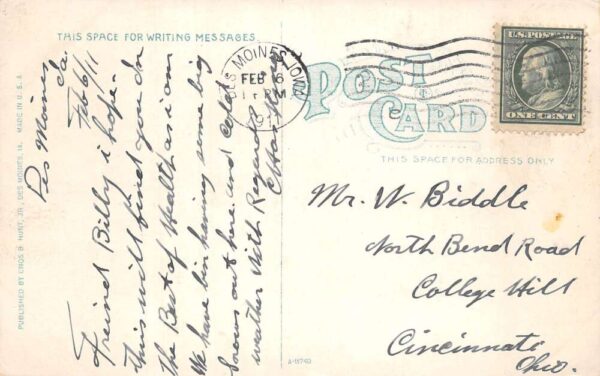 THIS SPACE FOR WRITING MESSAGES.
Des Moines
Ia.
Feb 6/11
Freind Billy i hope
this will find you in
the Best of Health as i am
We have bin having some big
Snows out here and cold
weather With Regards
PUBLISHED BY ENOS B. HUNT, JR., DES MOINES, IA. MADE IN U.S.A.
DES MOINES, IOWA
FEB 6
PM
1911
POST CARD
U.S. POSTAGE
ONE CENT
THIS SPACE FOR ADDRESS ONLY
Mr. W. Biddle
North Bend Road
College Hill
Cincinnati
Ohio.